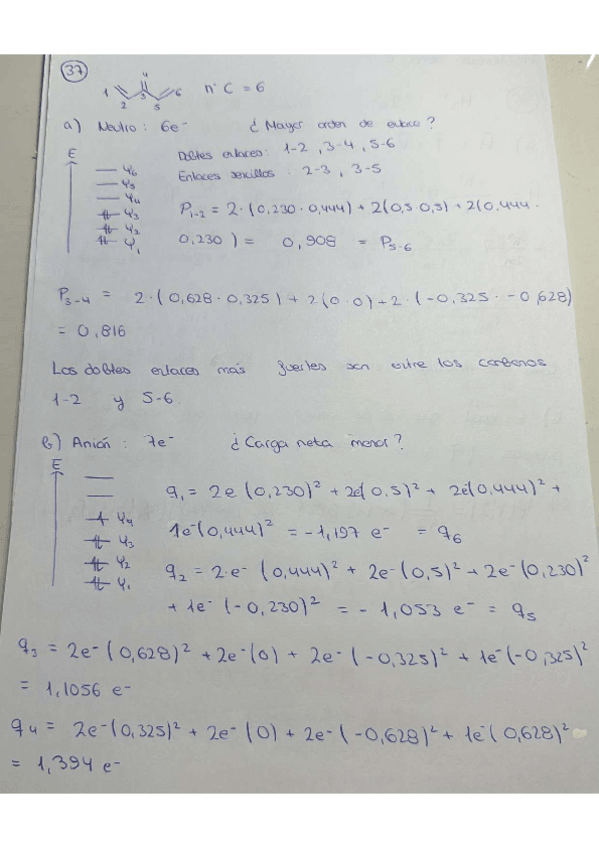 37
4
1 2 3 5 6 nº C = 6
a) Neutro : 6e⁻ ¿Mayor orden de enlace?
E Dobles enlaces: 1-2 , 3-4 , 5-6
Ψ6 Enlaces sencillos : 2-3 , 3-5
Ψ5
Ψ4
Ψ3 P₁₋₂ = 2·(0,230·0,444) + 2(0,5·0,5) + 2(0,444·
Ψ2
Ψ1 0,230) = 0,908 = P₅₋₆
P₃₋₄ = 2·(0,628·0,325) + 2(0·0) + 2·(-0,325·-0,628)
= 0,816
Los dobles enlaces más fuertes son entre los carbonos
1-2 y 5-6.
b) Anión : 7e⁻ ¿Carga neta menor?
E
q₁ = 2e (0,230)² + 2e⁻(0,5)² + 2e⁻(0,444)² +
Ψ4
Ψ3 1e⁻(0,444)² = -1,197 e⁻ = q₆
Ψ2 q₂ = 2·e⁻ (0,444)² + 2e⁻(0,5)² + 2e⁻(0,230)²
Ψ1
+ 1e⁻ (-0,230)² = -1,053 e⁻ = q₅
q₃ = 2e⁻(0,628)² + 2e⁻(0) + 2e⁻ (-0,325)² + 1e⁻(-0,325)²
= 1,1056 e⁻
q₄ = 2e⁻(0,325)² + 2e⁻ (0) + 2e⁻ (-0,628)² + 1e⁻(0,628)²
= 1,394 e⁻